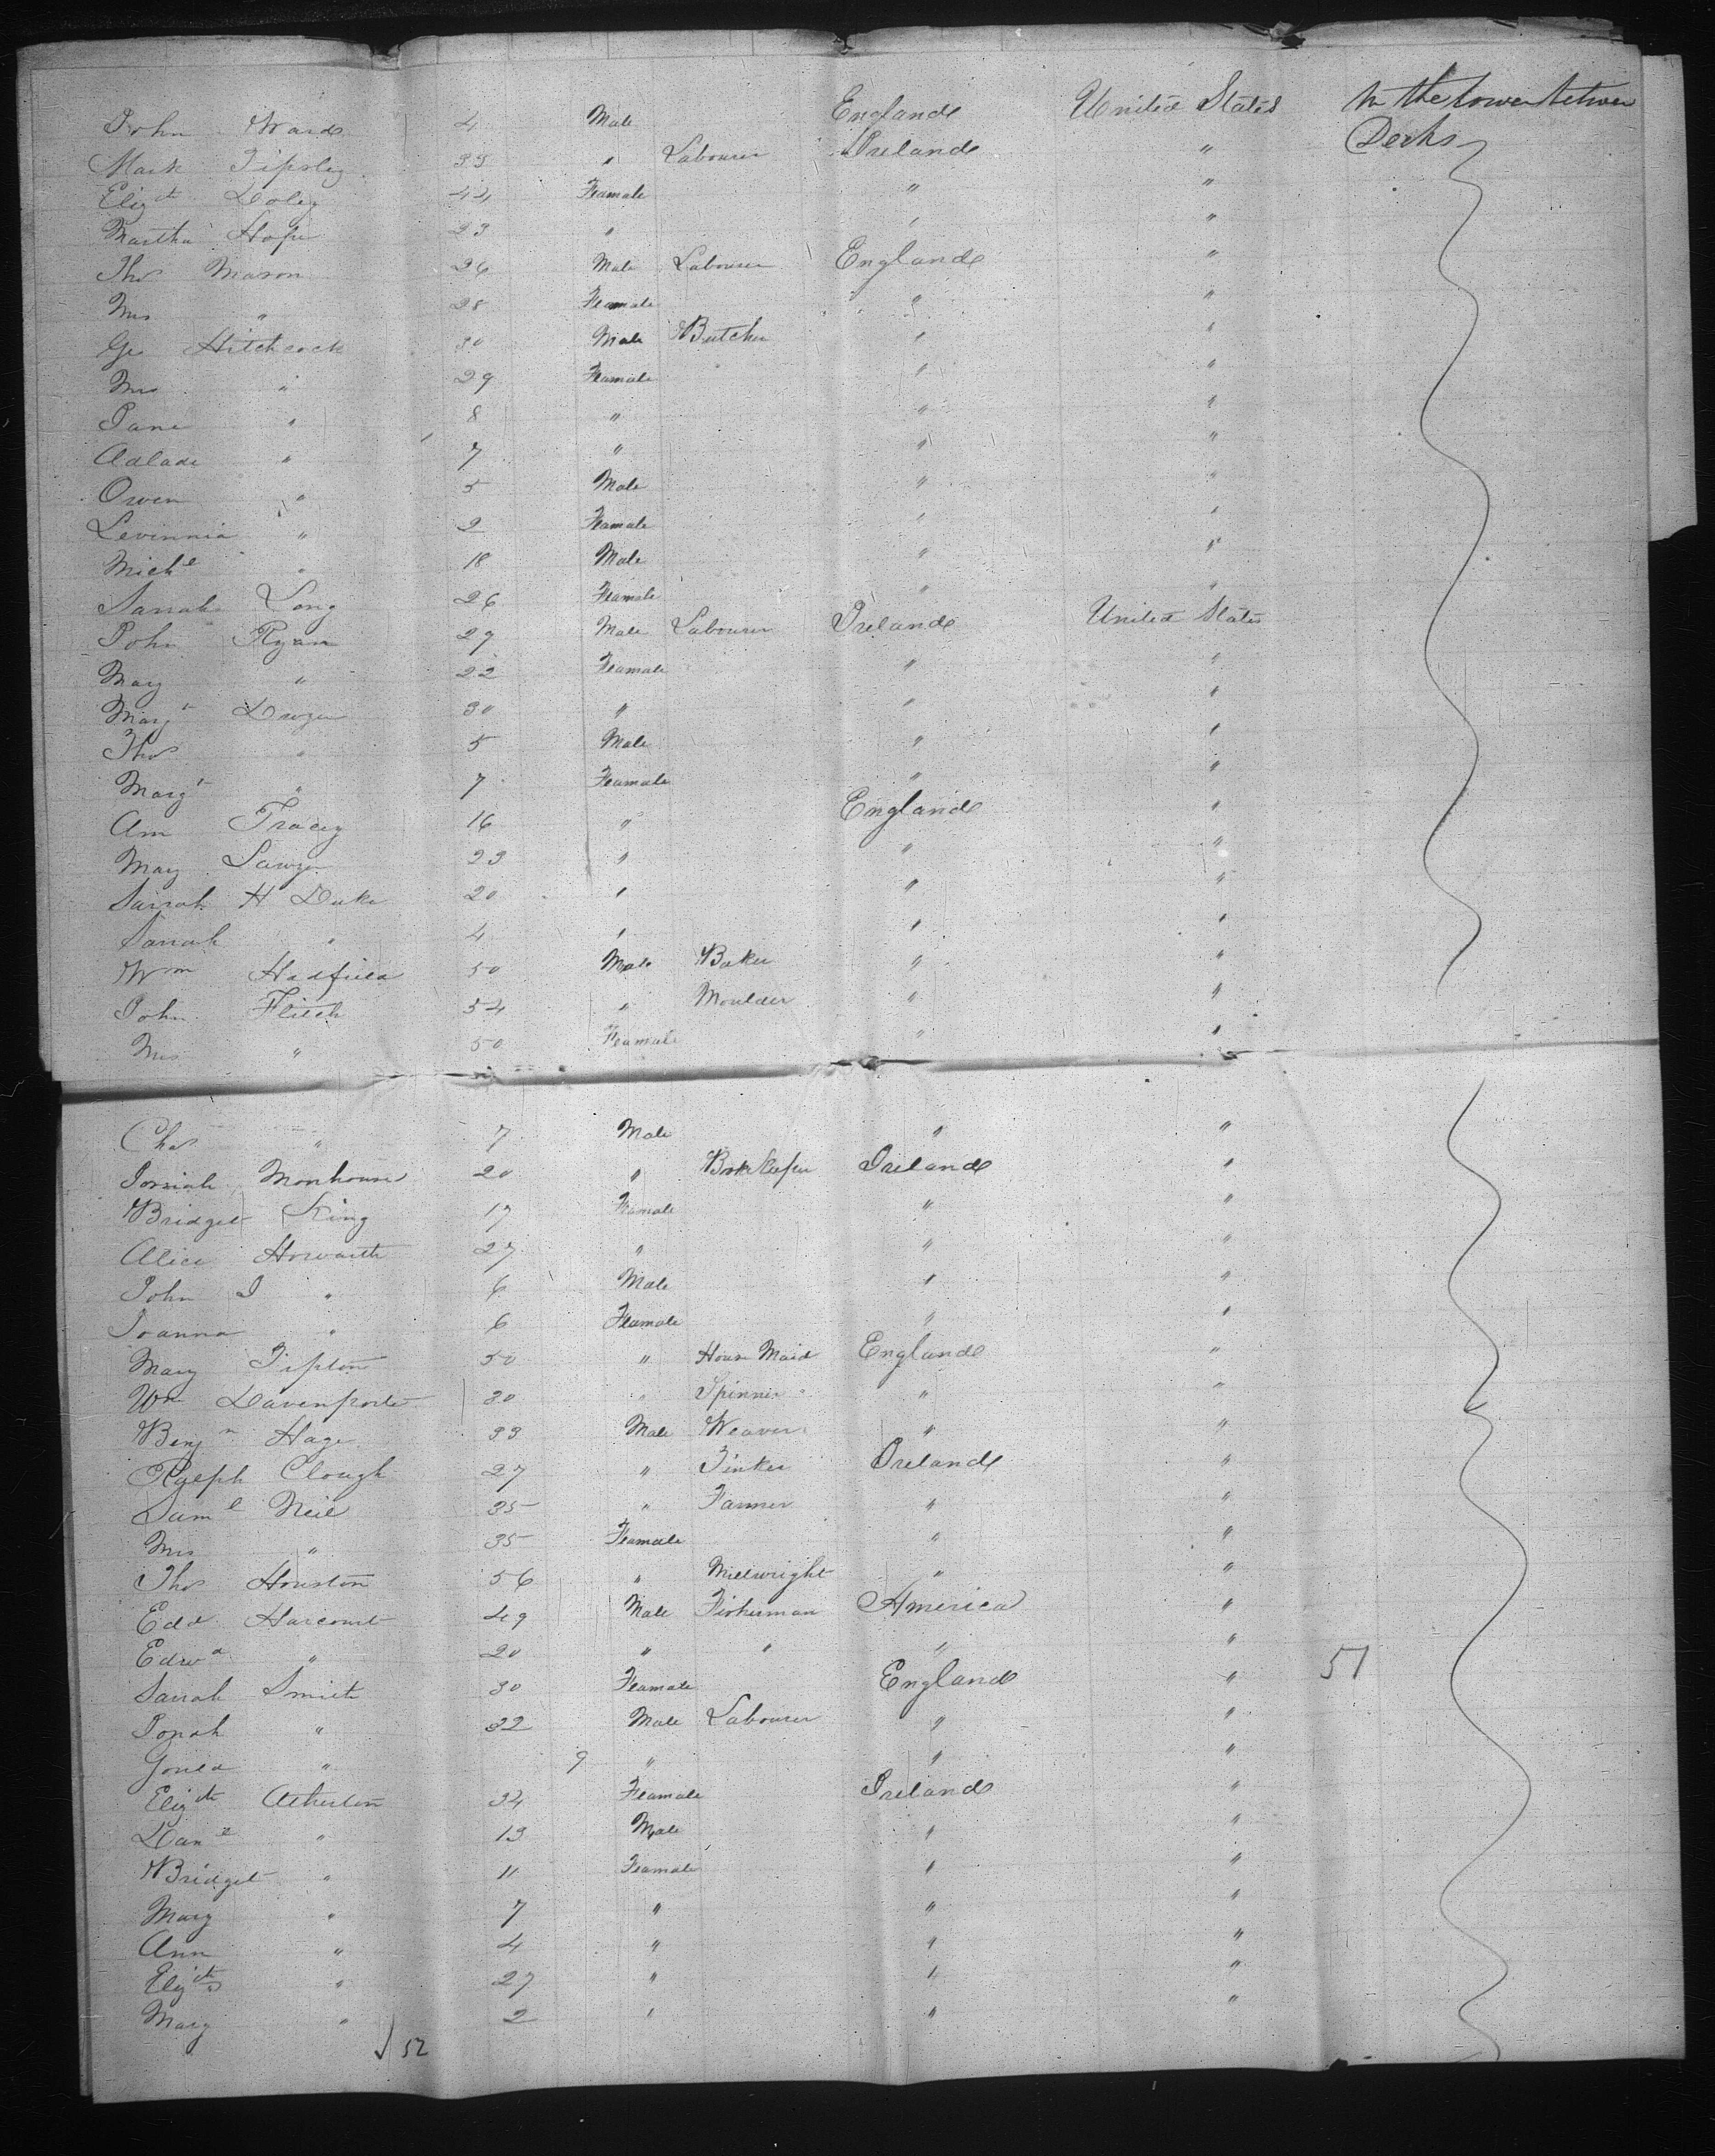 John Ward 4 Male England United States In the lower between
Mark Tipsley 35 " Labourer Ireland " Decks
Elizth Doley 44 Feamale " "
Martha Hope 23 " " "
Thos Mason 26 Male Labourer England "
Mrs " 28 Feamale " "
Ge Hitchcock 30 Male Butcher " "
Mrs " 29 Feamale " "
Jane " 8 " " "
Adlade " 7 " " "
Owen " 5 Male " "
Levinnia " 2 Feamale " "
Michl " 18 Male " "
Sarrah Long 26 Feamale " "
John Ryan 29 Male Labourer Ireland United States
Mary " 22 Feamale " "
Margt 30 " " "
Thos " 5 Male " "
Margt " 7 Feamale " "
Ann Tracey 16 " England "
Mary Sawyer 23 " " "
Sarrah H Duke 20 " " "
Sarrah " 4 " " "
Wm Hadfield 50 Male Baker " "
John Flitch 54 " Moulder " "
Mrs " 50 Feamale " "
Chas " 7 Male " "
Josiah Monhouse 20 " Book Keeper Ireland "
Bridget King 17 Feamale " "
Alice Howarth 27 " " "
John J " 6 Male " "
Joanna " 6 Feamale " "
Mary Tipton 50 " House Maid England "
Wm Davenporte 30 " Spinner " "
Benjn Hage 33 Male Weaver " "
Ralph Clough 27 " Tinker Ireland "
Saml Neil 35 " Farmer " "
Mrs " 35 Feamale " "
Thos Houston 56 " Millwright " "
Edd Harcourt 49 Male Fisherman America "
Edwd " 20 " " " " 51
Sarrah Smith 30 Feamale England "
Jonah " 32 Male Labourer " "
" 9 " " "
Elizth Atherton 34 Feamale Ireland "
Danl " 13 Male " "
Bridget " 11 Feamale " "
Mary " 7 " " "
Ann " 4 " " "
Elizth " 27 " " "
Mary " 2 " " "
52